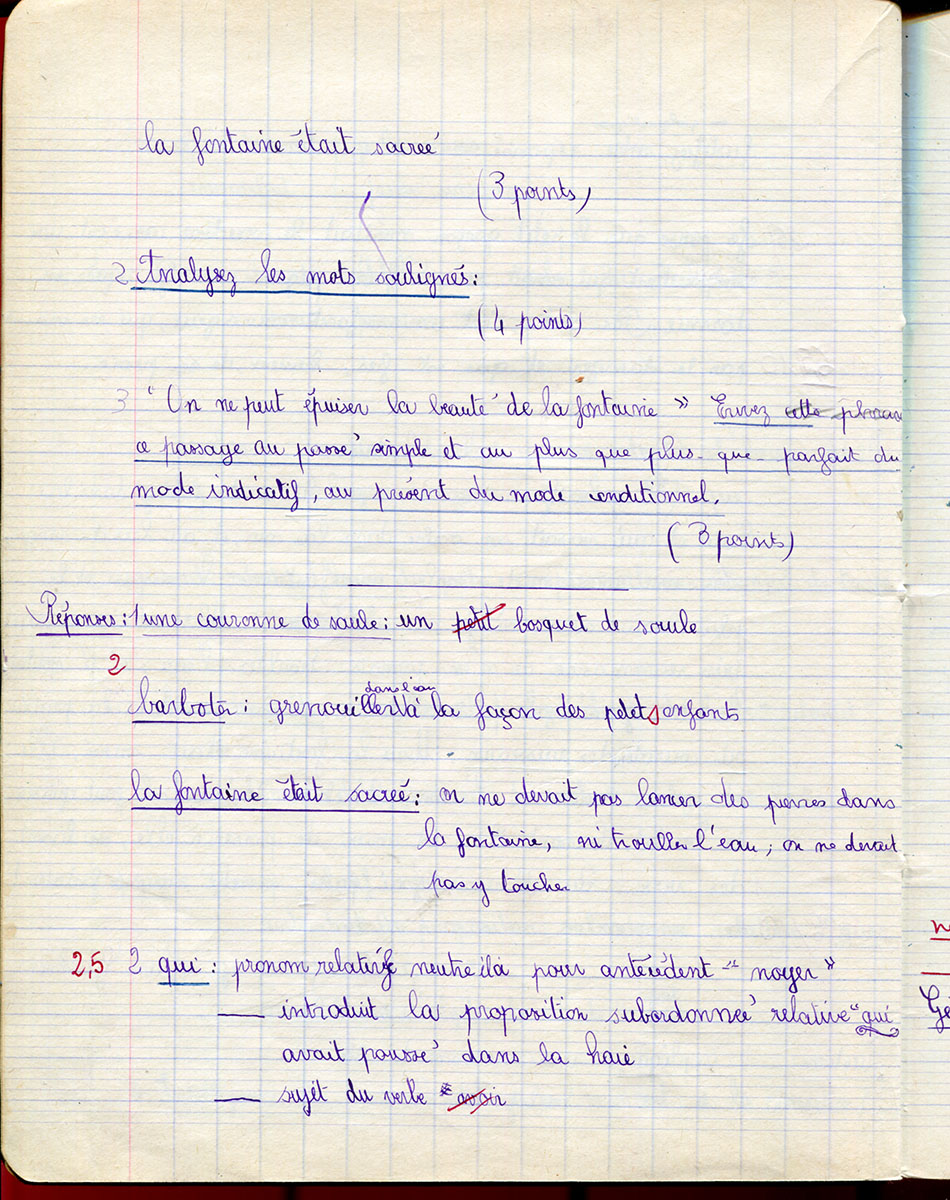 la fontaine était sacreé
(3 points)
2 Analysez les mots soulignés:
(4 points)
3 "On ne peut épuiser la beauté de la fontaine » Ecrivez cette phrase
ce passage au passé simple et au plus que plus-que-parfait du
mode indicatif, au présent du mode conditionnel.
(3 points)
Réponses: 1 une couronne de saule: un petit bosquet de saule
2
barboter: grenouiller dans l'eau à la façon des petits enfants
la fontaine était sacreé: on ne devait pas lancer des pierres dans
la fontaine, ni troubler l'eau; on ne devait
pas y toucher
2,5 2 qui: pronom relatif neutre il a pour antécédent "noyer"
— introduit la proposition subordonneé relative "qui
avait poussé dans la haie
— sujet du verbe avoir